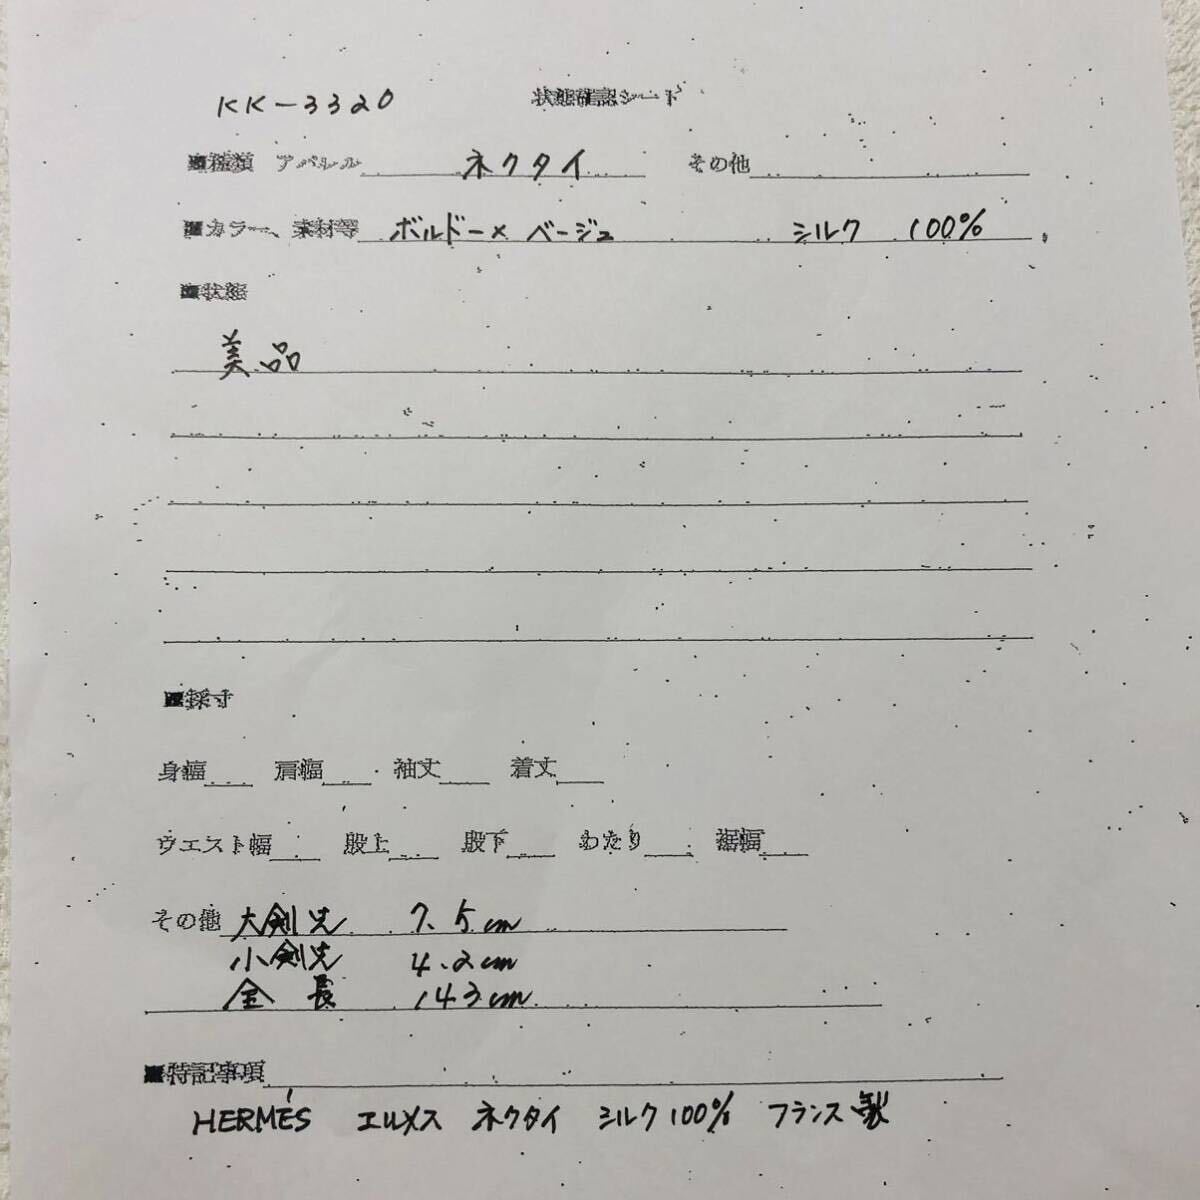 KK-3320 状態確認シート
■種類 アパレル ネクタイ その他
■カラー、素材等 ボルドー× ベージュ シルク 100%
■状態
美品
■採寸
身幅 肩幅 袖丈 着丈
ウエスト幅 股上 股下 わたり 裾幅
その他 大剣先 7.5cm
小剣先 4.2cm
全長 143cm
■特記事項
HERMÉS エルメス ネクタイ シルク100% フランス製